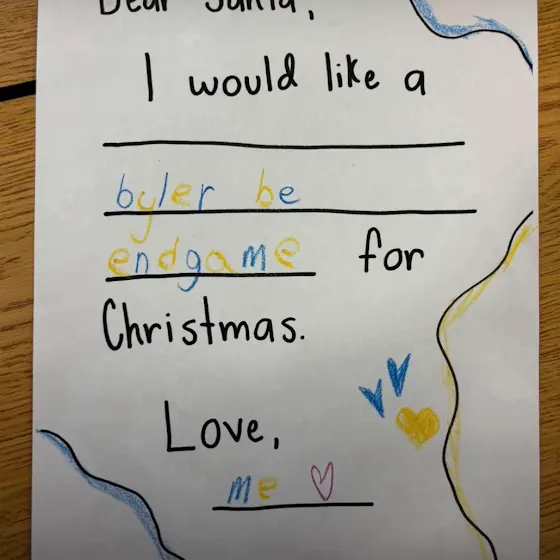 Dear Santa,
I would like a
byler be
endgame for
Christmas.
Love,
me